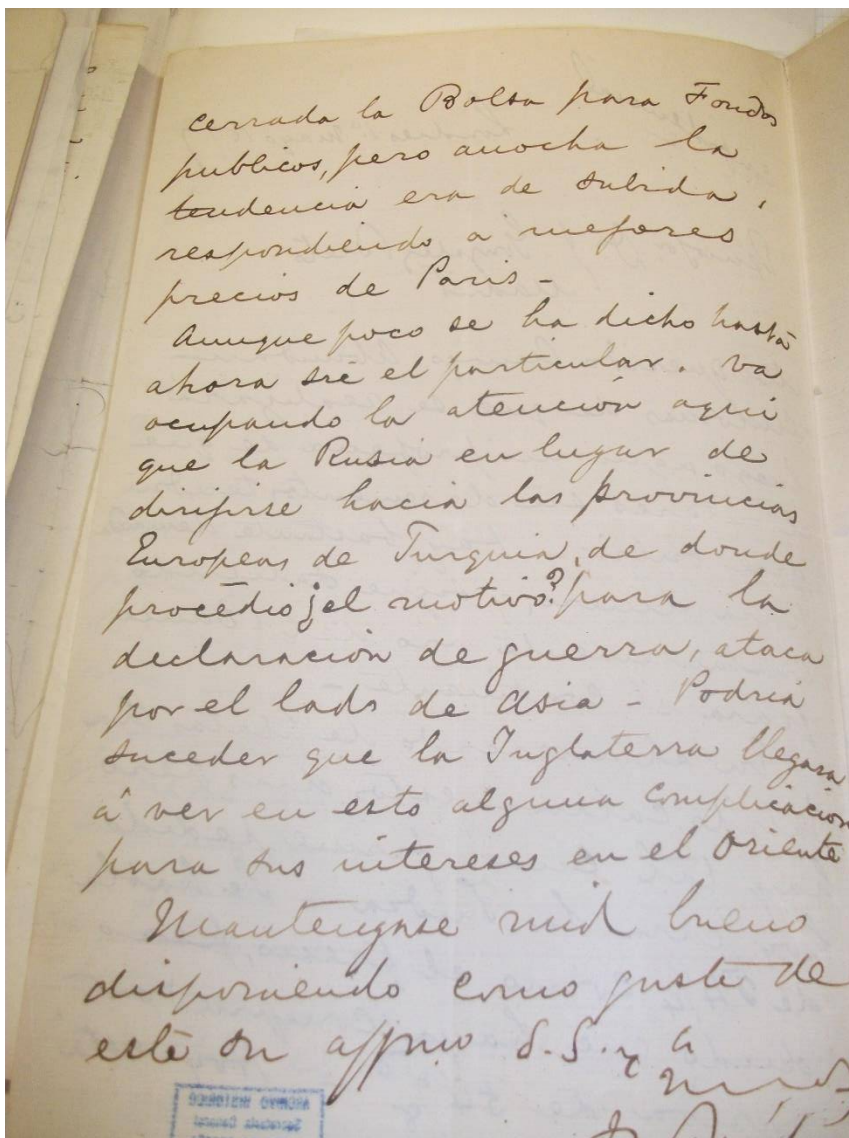 cerrada la Bolsa para Fondos
publicos, pero anocha la
tendencia era de subida,
respondiendo a mejores
precios de Paris -
Aunque poco se ha dicho hasta
ahora sre el particular. va
ocupando la atención aqui
que la Rusia en lugar de
dirijirse hacia las provincias
Europeas de Turquia, de donde
procedio ¿el motivo? para la
declaración de guerra, ataca
por el lado de Asia - Podria
suceder que la Inglaterra llegara
á ver en esto alguna complicacion
para sus intereses en el Oriente
Mantengase bueno
disponiendo como guste de
este su affmo S.S. y a
ARCHIVO HISTORICO
Secretaria General